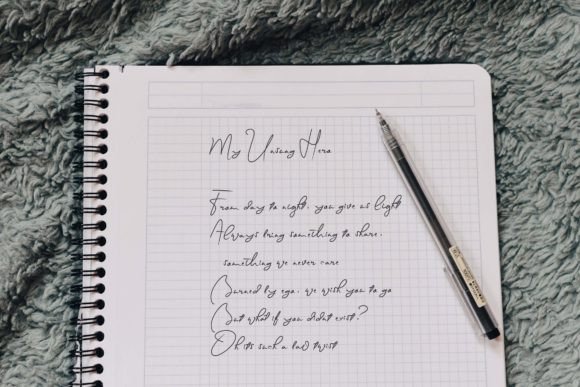 My Unsung Hero
From day to night, you give us light
Always bring something to share,
something we never care
Burned by ego, we wish you to go
But what if you didnt exist?
Oh its such a bad twist